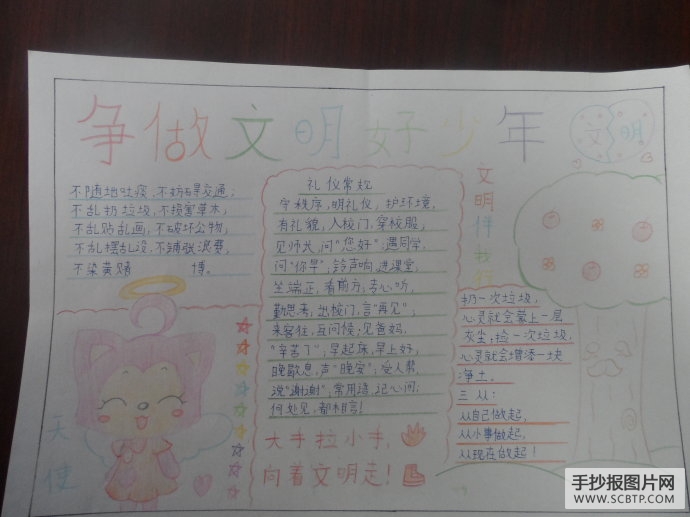 争做文明好少年
文 明
不随地吐痰,不妨碍交通;
不乱扔垃圾,不损害草木;
不乱贴乱画,不破坏公物;
不乱摆乱设,不铺张浪费,
不染黄赌 博。
天使
礼仪常规
守秩序,明礼仪,护环境,
有礼貌,入校门,穿校服,
见师大,问"您好";遇同学,
问"你早";铃声响,进课堂,
坐端正,看前方;专心听,
勤思考;出校门,言"再见";
来客往,互问候;见爸妈,
"辛苦了";早起床,早上好,
晚歇息,声"晚安";受人帮,
说"谢谢";常用语,记心间;
何处见,都相宜!
大手拉小手,
向着文明走!
文明伴我行
扔一次垃圾,
心灵就会蒙上一层
灰尘;捡一次垃圾,
心灵就会增添一块
净土。
三从:
从自己做起,
从小事做起,
从现在做起!
手抄报图片网
WWW.SCBTP.COM